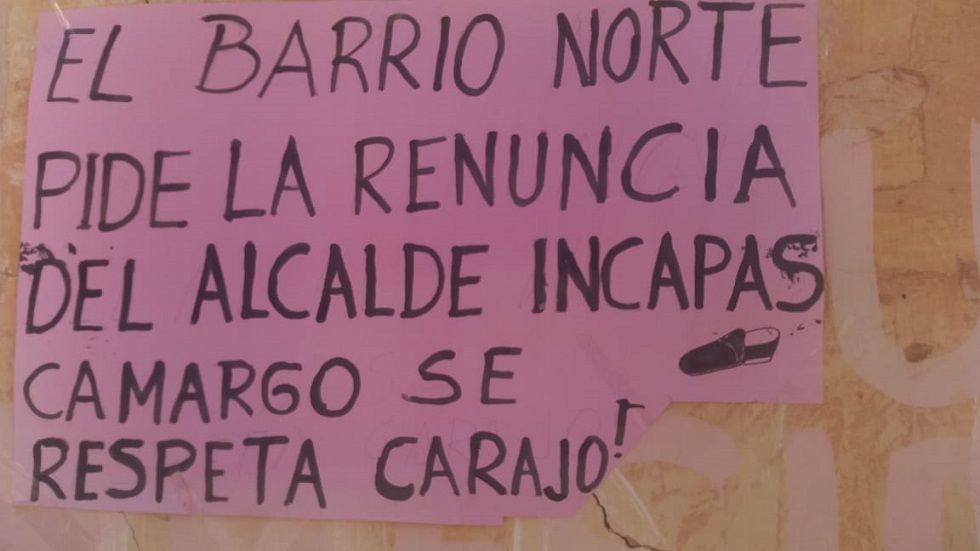 EL BARRIO NORTE
PIDE LA RENUNCIA
DEL ALCALDE INCAPAS
CAMARGO SE
RESPETA CARAJO!